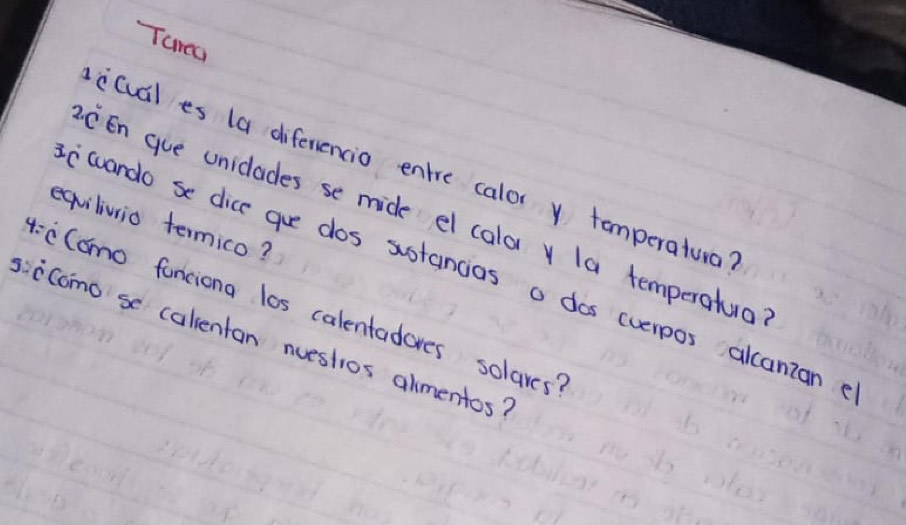 Tarea
1¿Cuál es la diferencia entre calor y temperatura?
2¿En que unidades se mide el calor y la temperatura?
3¿Cuando se dice que dos sustancias o dos cuerpos alcanzan el
equilivrio termico?
4:¿Cómo funciona los calentadores solares?
5:¿Cómo se calientan nuestros alimentos?